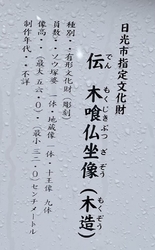 日光市指定文化財
伝 木喰仏坐像(木造)
でん もくじきぶつ ざ ぞう もくぞう
種別・・有形文化財(彫刻)
員数・・ソウ塚婆 一体・地蔵像 一体・十王像 九体
像高・・(最大 五六・〇)・(最小 二二・〇)センチメートル
制作年代・・不詳